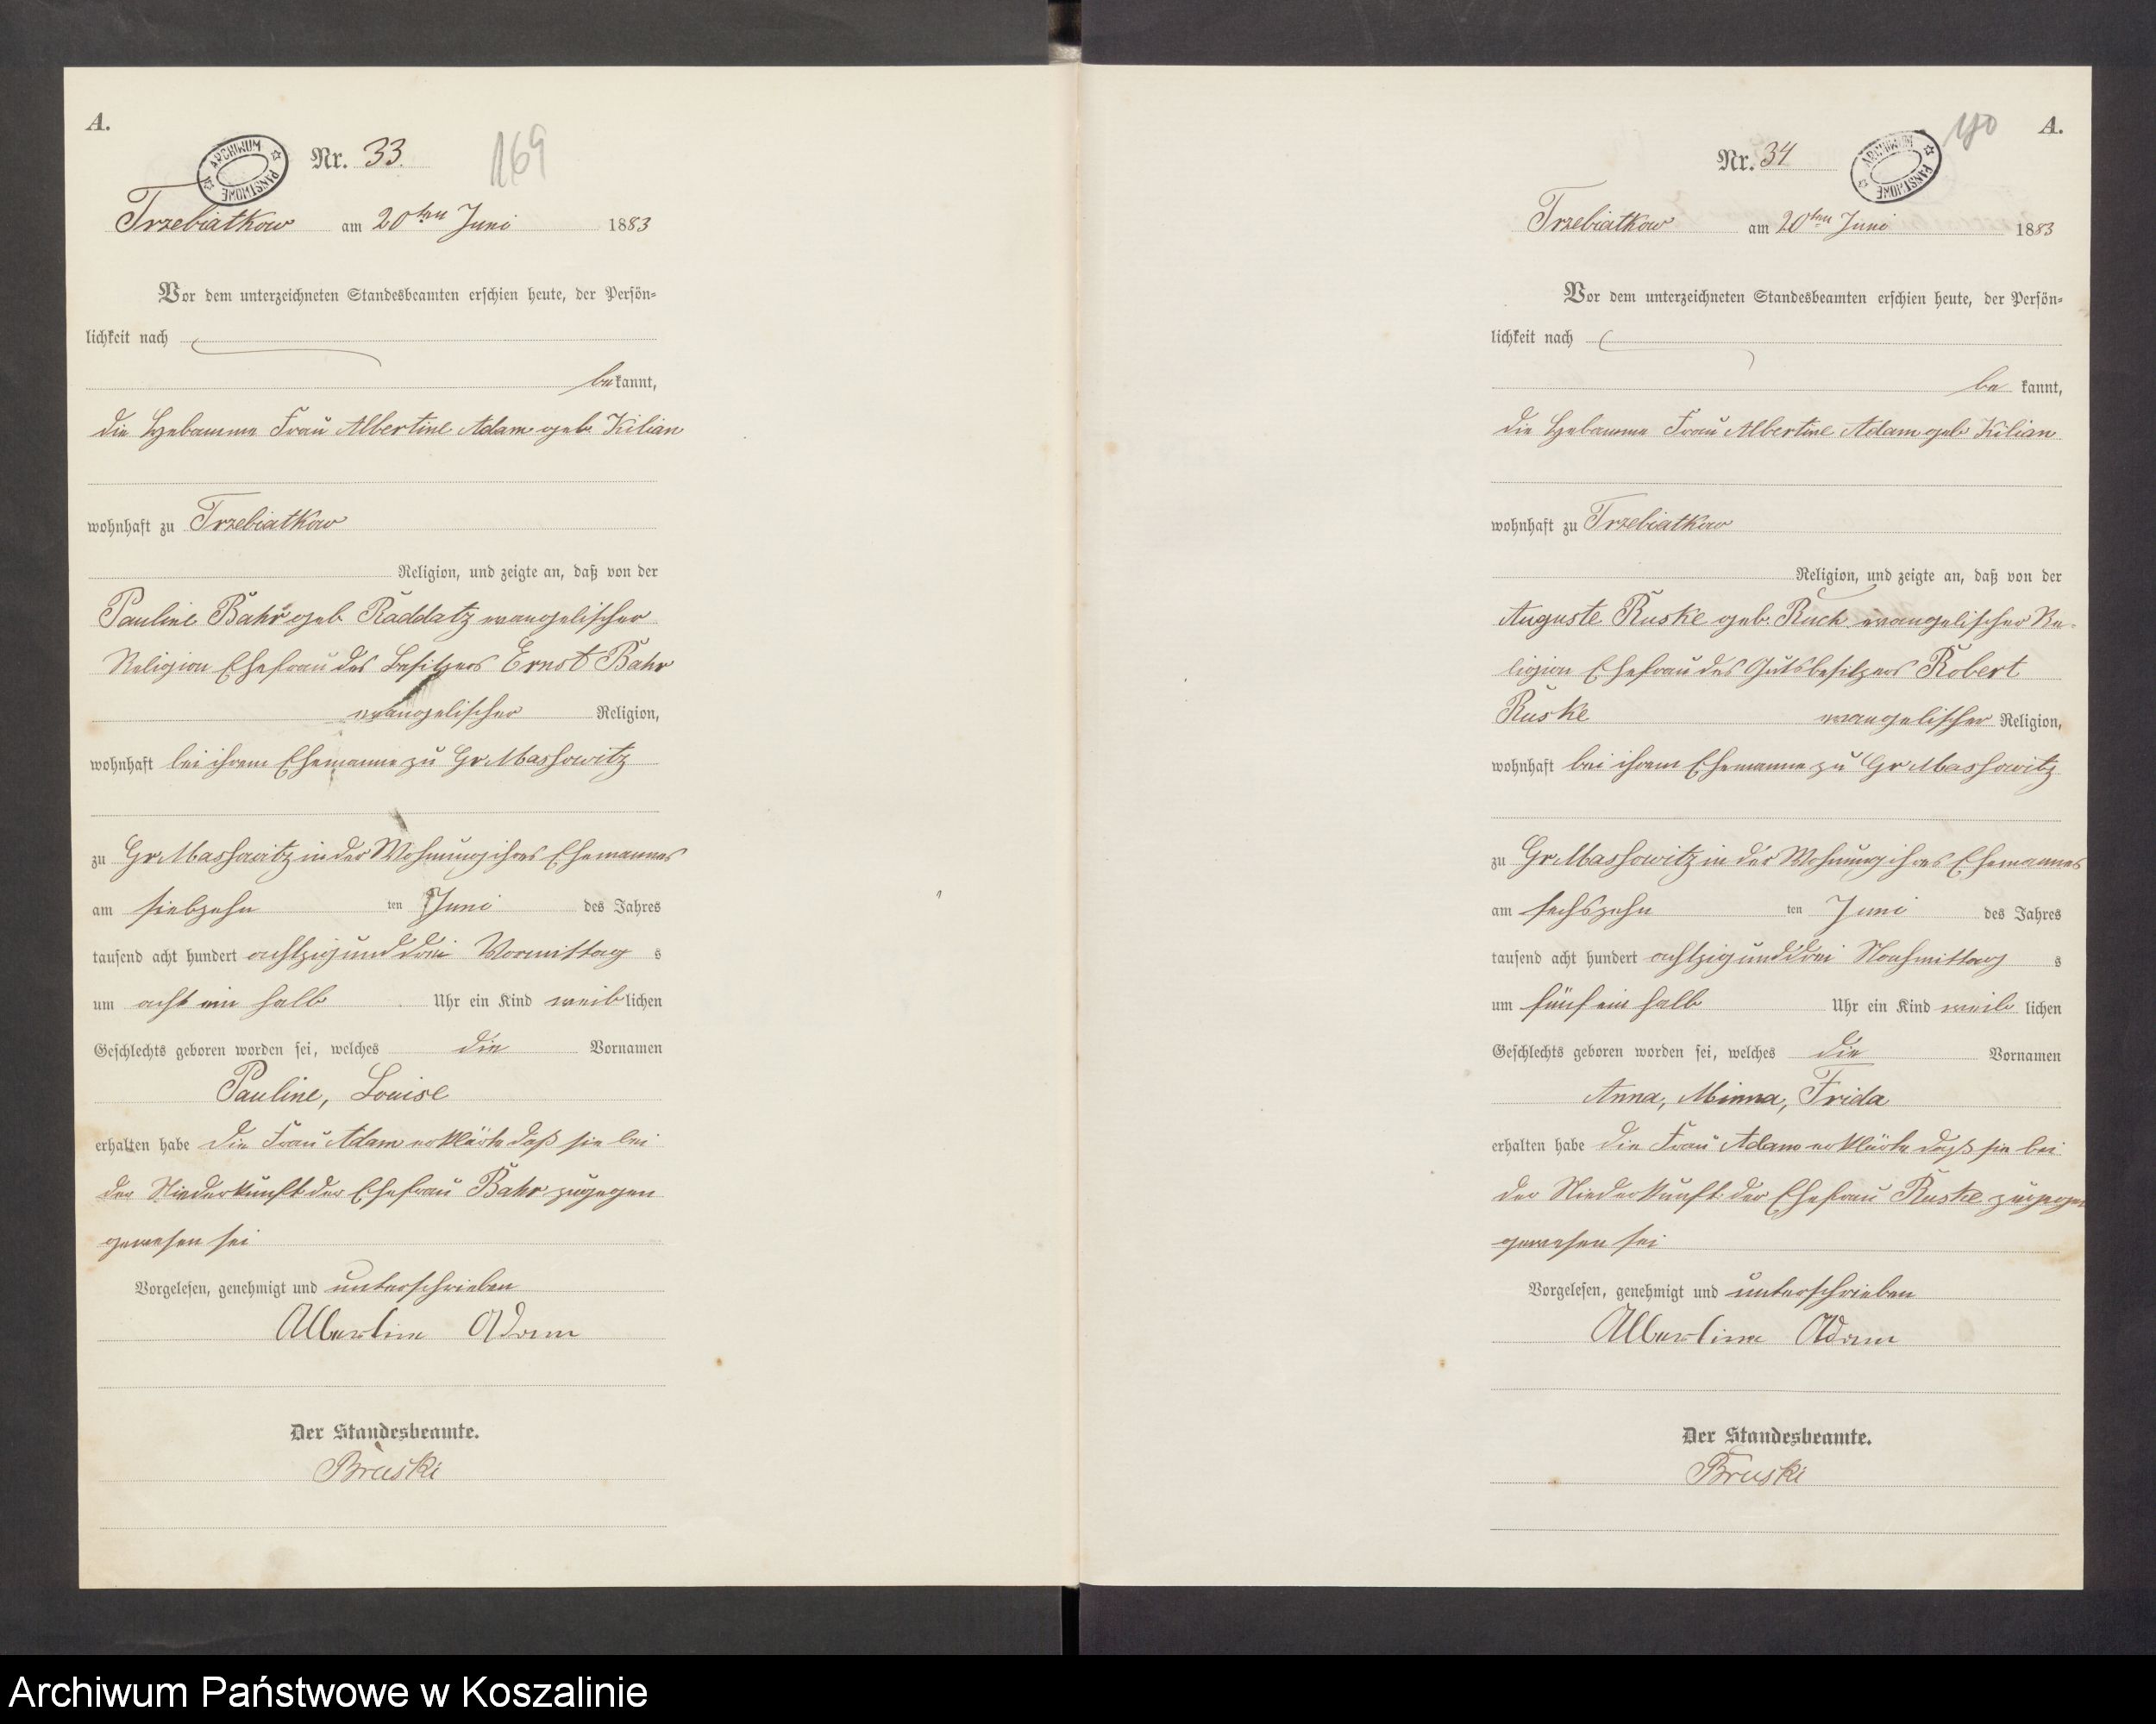 A.
ARCHIWUM PAŃSTWOWE
Nr. 33.
169
Trzebiatkow am 20ten Juni 1883
Vor dem unterzeichneten Standesbeamten erschien heute, der Persön-
lichkeit nach
bekannt,
die Hebamme Frau Albertine Adam geb. Kilian
wohnhaft zu Trzebiatkow
Religion, und zeigte an, daß von der
Pauline Bahr geb. Raddatz evangelischer
Religion Ehefrau des Besitzers Ernst Bahr
evangelischer Religion,
wohnhaft bei ihrem Ehemanne zu Gr Massowitz
zu Gr Massowitz in der Wohnung ihres Ehemannes
am siebzehn ten Juni des Jahres
tausend acht hundert achtzig und drei Vormittag s
um acht ein halb Uhr ein Kind weiblichen
Geschlechts geboren worden sei, welches die Vornamen
Pauline, Louise
erhalten habe die Frau Adam erklärte daß sie bei
der Niederkunft der Ehefrau Bahr zugegen
gewesen sei
Vorgelesen, genehmigt und unterschrieben
Albertine Adam
Der Standesbeamte.
Bruski
A.
170
ARCHIWUM PAŃSTWOWE
Nr. 34
Trzebiatkow am 20ten Juni 1883
Vor dem unterzeichneten Standesbeamten erschien heute, der Persön-
lichkeit nach
be kannt,
die Hebamme Frau Albertine Adam geb Kilian
wohnhaft zu Trzebiatkow
Religion, und zeigte an, daß von der
Auguste Ruske geb. Ruch evangelischer Re-
ligion Ehefrau des Gutsbesitzers Robert
Ruske evangelischer Religion,
wohnhaft bei ihrem Ehemanne zu Gr Massowitz
zu Gr Massowitz in der Wohnung ihres Ehemannes
am sechszehn ten Juni des Jahres
tausend acht hundert achtzig und drei Nachmittag s
um fünf ein halb Uhr ein Kind weib lichen
Geschlechts geboren worden sei, welches die Vornamen
Anna, Minna, Frida
erhalten habe die Frau Adam erklärte daß sie bei
der Niederkunft der Ehefrau Ruske zugegen
gewesen sei
Vorgelesen, genehmigt und unterschrieben
Albertine Adam
Der Standesbeamte.
Bruski
Archiwum Państwowe w Koszalinie